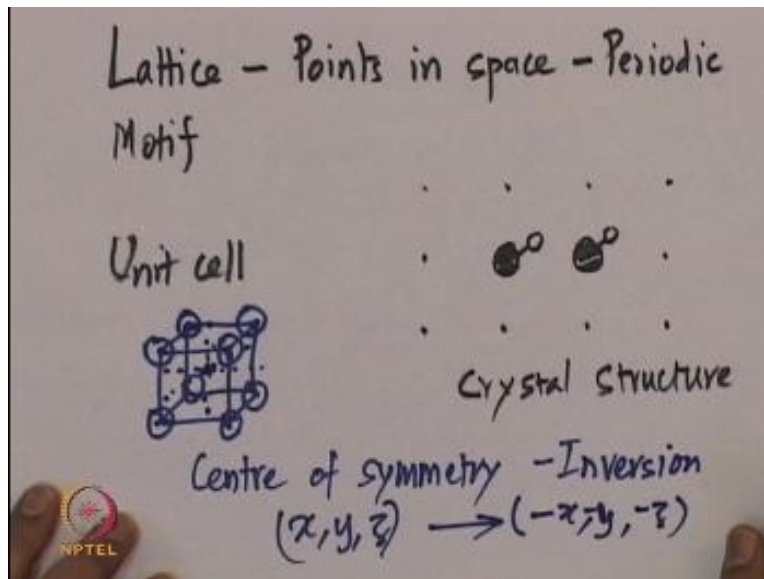 Lattice - Points in space - Periodic
Motif
Unit cell
Crystal structure
Centre of symmetry - Inversion
(x, y, z) → (-x, -y, -z)
NPTEL